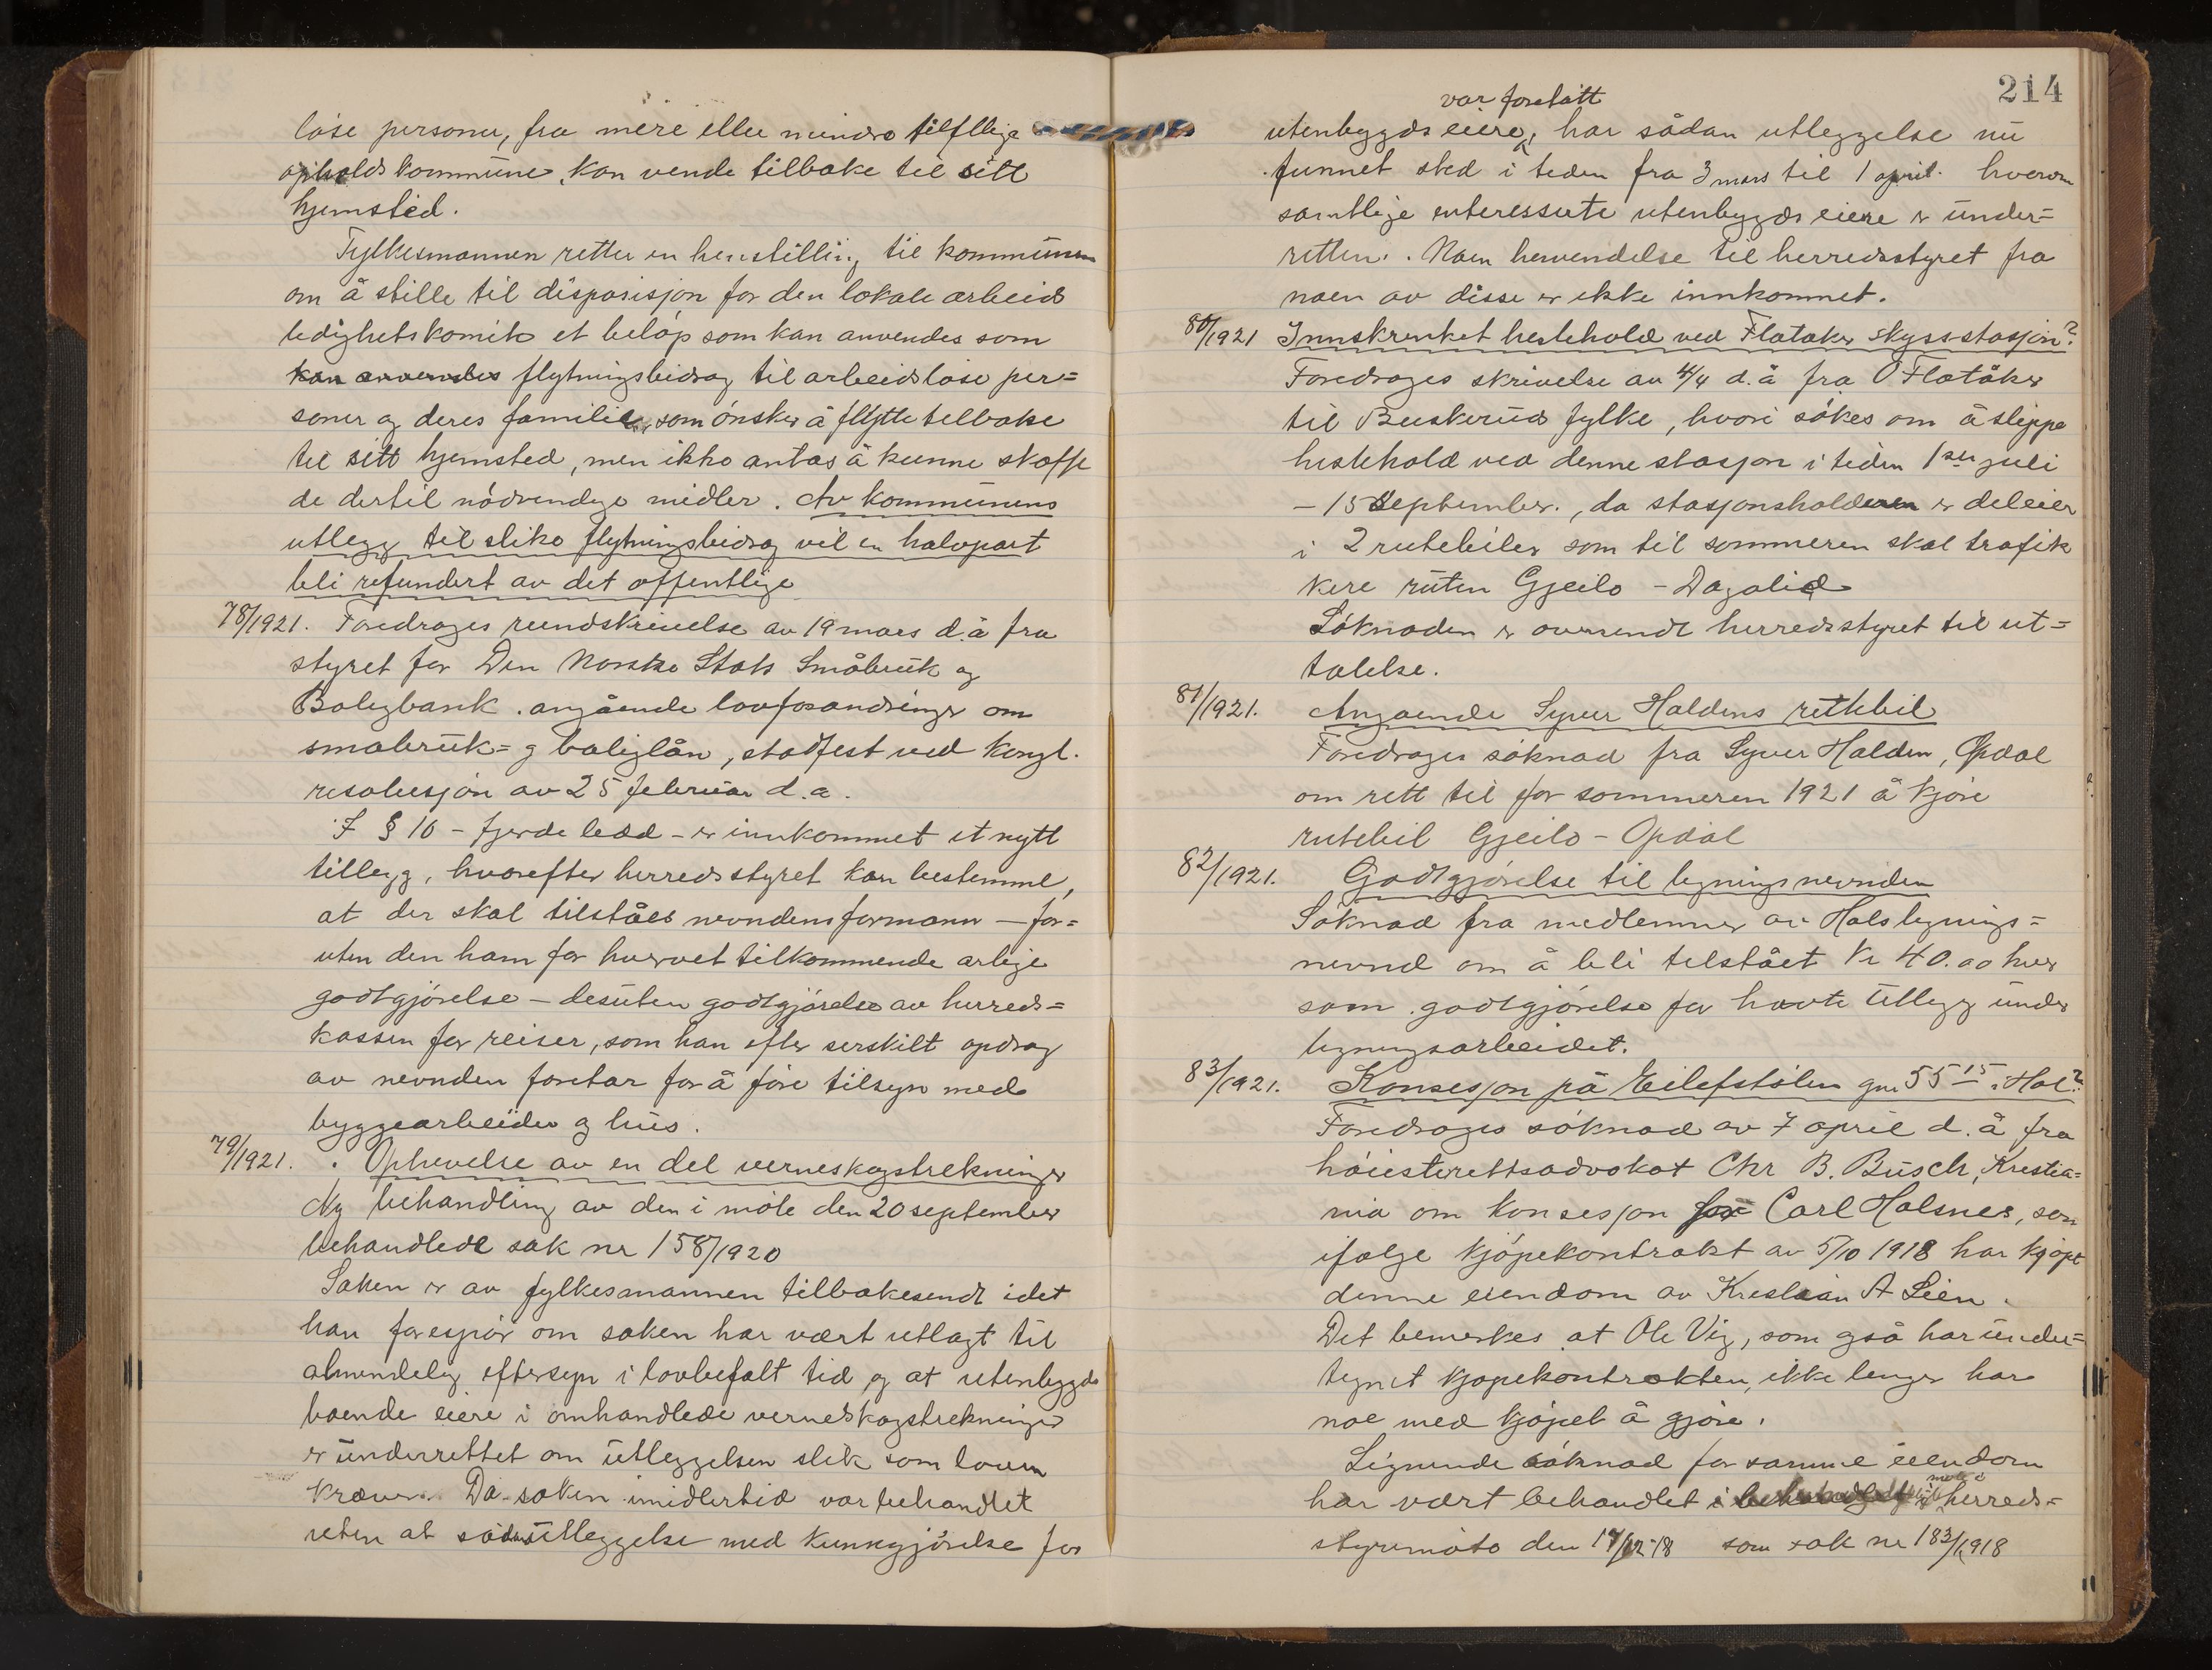 løse personer, fra mere eller mindre tilfllige
opholdskommune, kan vende tilbake til sitt
hjemsted.
Fylkesmannen retter en henstilling til kommunen
om å stille til disposisjon for den lokale arbeids
ledighetskomite et beløp som kan anvendes som
kan anvendes flytningsbidrag til arbeidsløse per=
soner og deres familie, som ønsker å flytte tilbake
til sitt hjemsted, men ikke antas å kunne skaffe
de dertil nødvendige midler. Av kommunens
utlegg til slike flytningsbidrag vil en halvpart
bli refundert av det offentlige
78/1921. Foredrages rundskrivelse av 19 mars d.å fra
styret for Den Norske Stats Småbruk og
Boligbank. angående lovforandringer om
småbruk= og boliglån, stadfest ved kongl.
resolusjon av 25 februar d.a.
I § 16 - fjerde ledd - er innkommet et nytt
tillegg, hvorefter herredsstyret kan bestemme,
at der skal tilståes nevndens formann - for=
uten den ham for hvervet tilkommende arlige
godtgjörelse - desuten godtgjörelse av herreds=
kassen for reiser, som han efter serskilt opdrag
av nevnden foretar for å føre tilsyn med
byggearbeider og hus.
79/1921. Ophevelse av en del verneskogstrekninger
Ny behandling av den i møte den 20 september
behandlede sak nr 158/1920
Saken er av fylkesmannen tilbakesendt idet
han forespör om saken har vært utlagt til
almendelig eftersyn i lovbefalt tid og at utenbygds
boende eiere i omhandlede verneskogstrekninger
er underrettet om utleggelsen slik som loven
kræver. Da saken imidlertid var behandlet
uten at sådan utleggelse med kunngjörelse for
214
var foretatt
utenbygds eiere, har sådan utleggelse nu
funnet sted i tiden fra 3 mars til 1 april. hverom
samtlige interesserte utenbygds eiere er under=
retten. Noen henvendelse til herredsstyret fra
noen av disse er ikke innkommet.
80/1921 Innskrenket hestehold ved Flatåker skyss-stasjon?
Foredrages skrivelse av 4/4 d.å fra O Flatåker
til Buskerud fylke, hvori søkes om å sleppe
hestehold ved denne stasjon i tiden 1ste juli
- 15 September., da stasjonsholderen er deleier
i 2 rutebiler som til sommeren skal trafik
kere ruten Gjeilo - Dagalid
Søknaden er oversendt herredsstyret til ut=
talelse.
81/1921. Angaende Syver Haldens rutebil
Foredrages søknad fra Syver Halden, Opdal
om rett til for sommeren 1921 å kjøre
rutebil Gjeilo - Opdal
82/1921. Godtgjörelse til ligningsnevnden
Søknad fra medlemmer av Hols lignings=
nevnd om å bli tilstået kr 40.00 hver
som godtgjörelse for havte utlegg under
ligningsarbeidet.
83/1921. Konsesjon på Eilefstølen gnr 55 15 i Hol?
Foredrages søknad av 7 april d.å fra
høiesterettsadvokat Chr B. Busch, Kristia=
nia om konsesjon for Carl Halsnes, som
ifølge kjøpekontrakt av 5/10 1918 har kjøpt
denne eiendom av Kristian A Lien.
Det bemerkes at Ole Vig, som også har under=
tegnet kjøpekontrakten, ikke lenger har
noe med kjøpet å gjøre.
Lignende søknad for samme eiendom
har vært behandlet i herreds=
styremøte den 17/12-18 som sak nr 183/1918